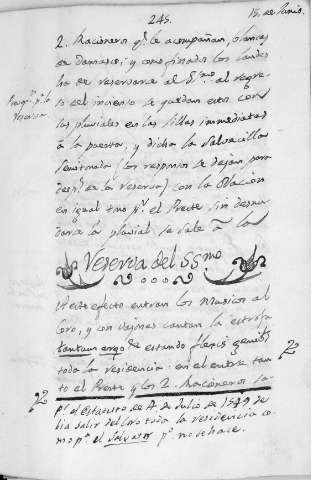 245.
15, de Junio.
2. Racioneros qe. le acompañan, blancas
de Damasco; y como finados los Laudes
ha de reservarse al Smo. al regre-
so del incienso se quedan estos con
las pluviales en las sillas immediatas
à la puerta, y dicha la Salvecilla
Semitonada (los responsos se dejan para
despues de la reserva) con la Oracion
en igual tono pr. el Preste, sin desnu-
darse la pluvial se sale à la
Reserva
Reserva del SSmo.
A este efecto entran los Musicos al
Coro, y con vajones cantan la estrofa
tantum ergo estando flexis genibus
toda la residencia: en el entre tan-
to el Preste y los 2. Racioneros
pr. el estatuto de 4. de Julio de 1549 de-
bia salir del Coro toda la residencia co-
mo pa. el Salvator po. no se hace.